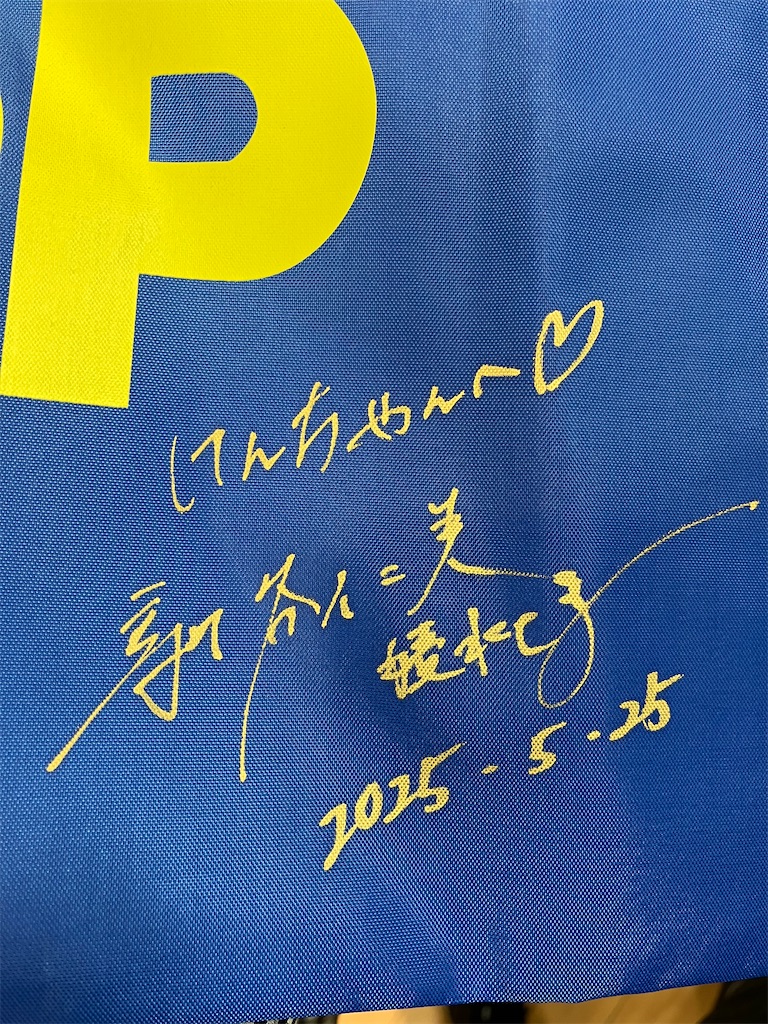 P
けんちゃんへ♡
新谷仁美
2025.5.25